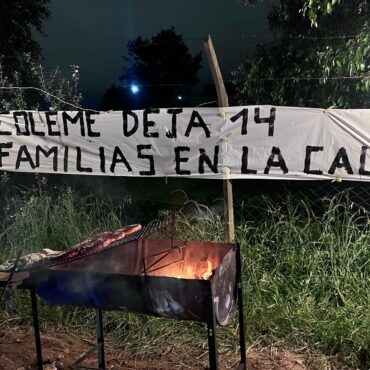 COLEME DEJA 14
FAMILIAS EN LA CAL